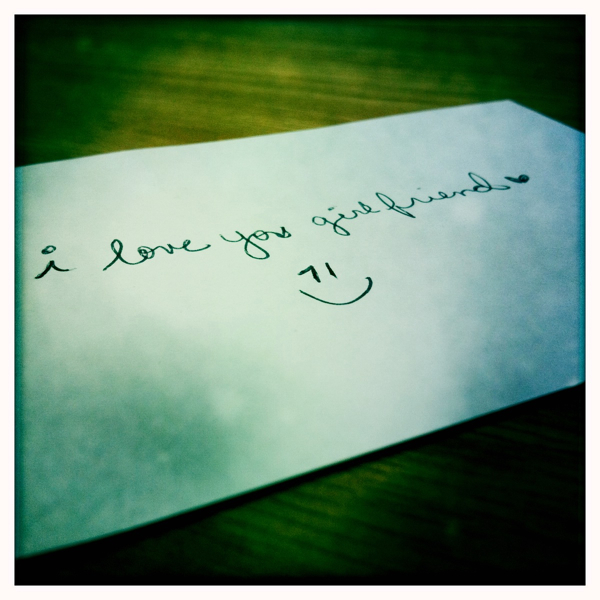 i love you girlfriend ♥